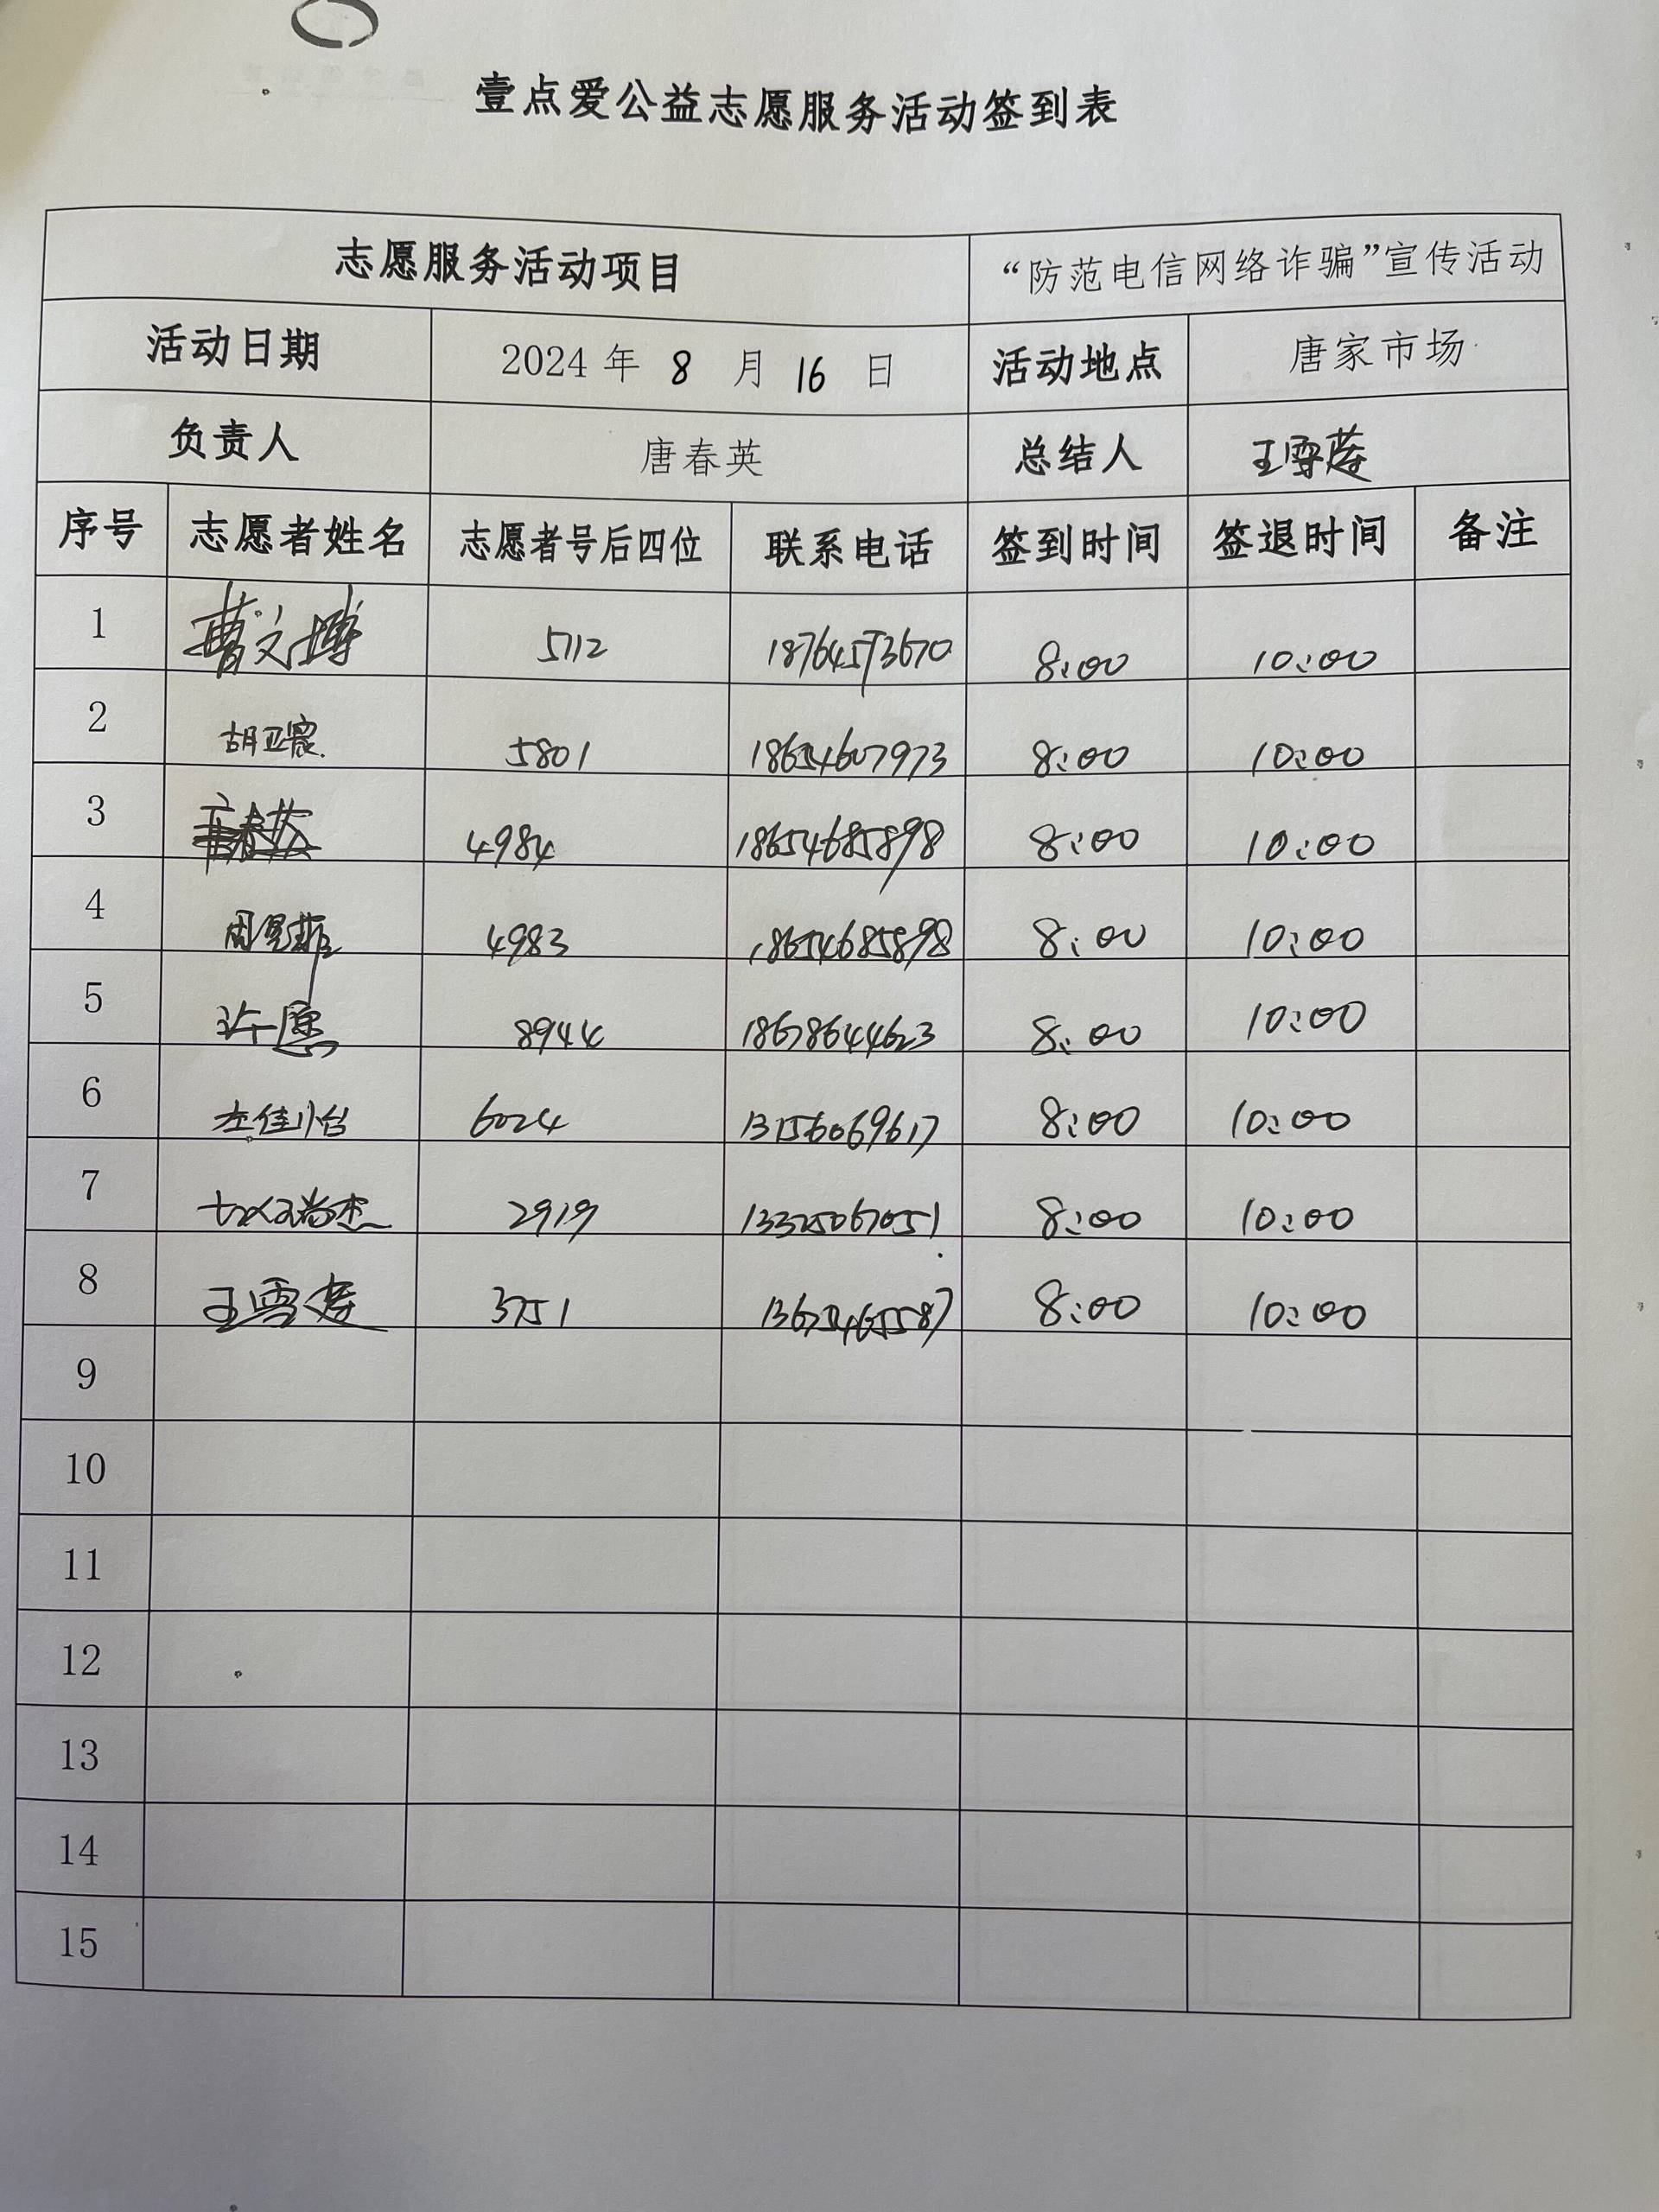 壹点爱公益志愿服务活动签到表
志愿服务活动项目 “防范电信网络诈骗”宣传活动
活动日期 2024 年 8 月 16 日 活动地点 唐家市场
负责人 唐春英 总结人 王雪莲
序号 志愿者姓名 志愿者号后四位 联系电话 签到时间 签退时间 备注
1 曹文博 5712 18764573670 8:00 10:00
2 胡亚宸 5801 18654607973 8:00 10:00
3 4984 18654685898 8:00 10:00
4 4983 18654685898 8:00 10:00
5 许愿 8944 18678644623 8:00 10:00
6 左佳怡 6024 13156069617 8:00 10:00
7 2919 8:00 10:00
8 3751 8:00 10:00
9
10
11
12
13
14
15